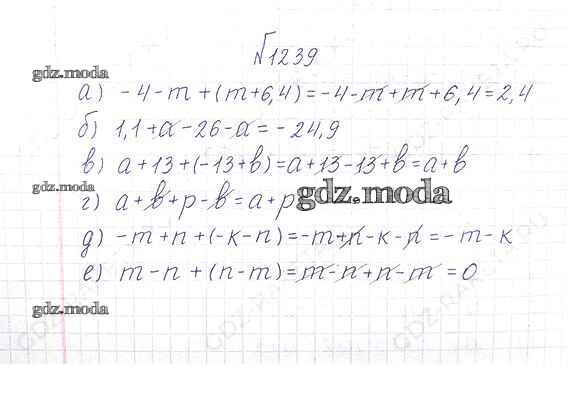 №1239
gdz.moda
а) -4-m+(m+6,4)=-4-m+m+6,4=2,4
б) 1,1+a-26-a=-24,9
в) a+13+(-13+b)=a+13-13+b=a+b
gdz.moda
г) a+b+p-b=a+p
gdz.moda
д) -m+n+(-k-n)=-m+n-k-n=-m-k
е) m-n+(n-m)=m-n+n-m=0
gdz.moda